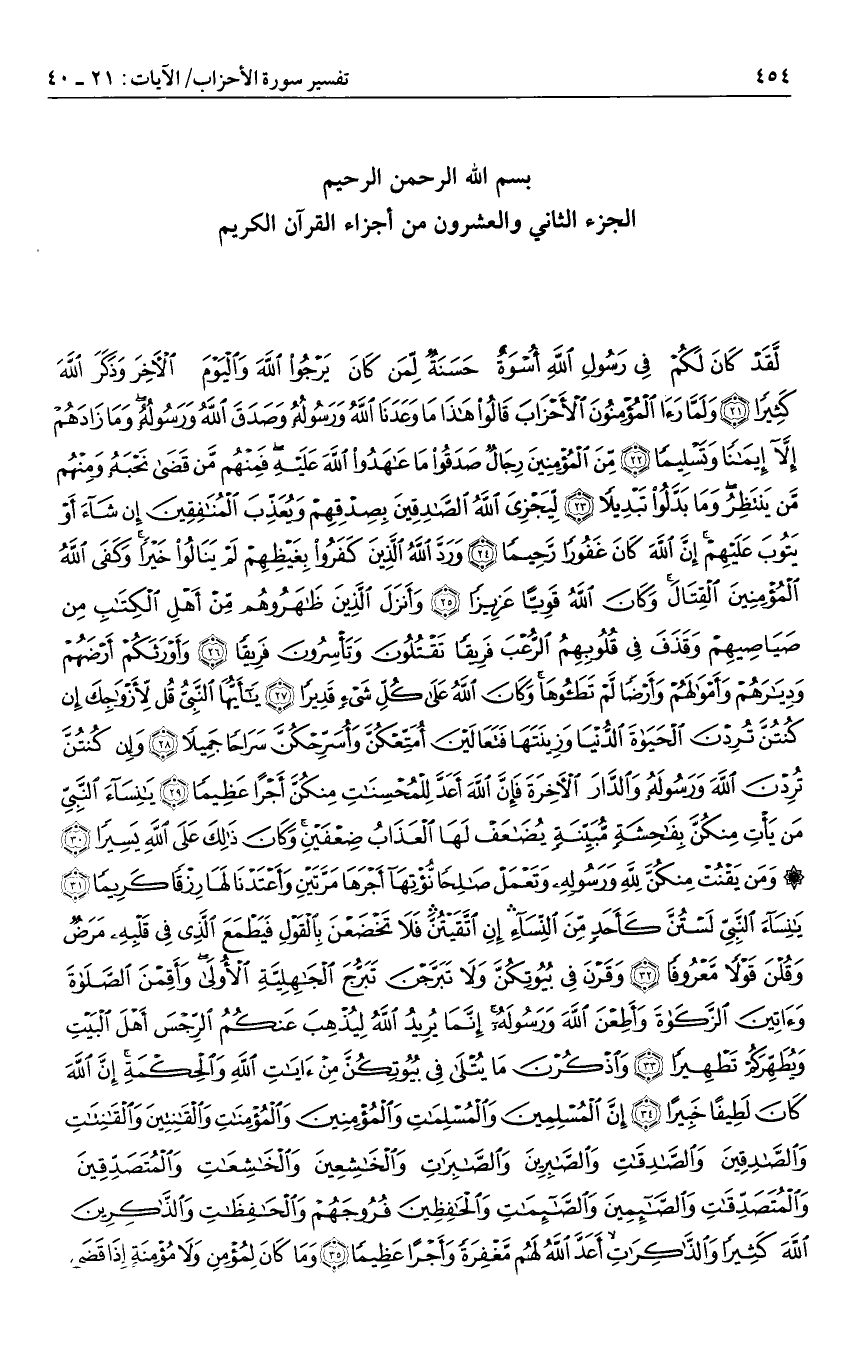 ٤٥٤ تفسير سورة الأحزاب/ الآيات: ٢١ ـ ٤٠
بسم الله الرحمن الرحيم
الجزء الثاني والعشرون من أجزاء القرآن الكريم
لَّقَدْ كَانَ لَكُمْ فِي رَسُولِ ٱللَّهِ أُسْوَةٌ حَسَنَةٌ لِّمَن كَانَ يَرْجُوا۟ ٱللَّهَ وَٱلْيَوْمَ ٱلْـَٔاخِرَ وَذَكَرَ ٱللَّهَ
كَثِيرًا ﴿٢١﴾ وَلَمَّا رَءَا ٱلْمُؤْمِنُونَ ٱلْأَحْزَابَ قَالُوا۟ هَـٰذَا مَا وَعَدَنَا ٱللَّهُ وَرَسُولُهُۥ وَصَدَقَ ٱللَّهُ وَرَسُولُهُۥ ۚ وَمَا زَادَهُمْ
إِلَّآ إِيمَـٰنًا وَتَسْلِيمًا ﴿٢٢﴾ مِّنَ ٱلْمُؤْمِنِينَ رِجَالٌ صَدَقُوا۟ مَا عَـٰهَدُوا۟ ٱللَّهَ عَلَيْهِ ۖ فَمِنْهُم مَّن قَضَىٰ نَحْبَهُۥ وَمِنْهُم
مَّن يَنتَظِرُ ۖ وَمَا بَدَّلُوا۟ تَبْدِيلًا ﴿٢٣﴾ لِّيَجْزِىَ ٱللَّهُ ٱلصَّـٰدِقِينَ بِصِدْقِهِمْ وَيُعَذِّبَ ٱلْمُنَـٰفِقِينَ إِن شَآءَ أَوْ
يَتُوبَ عَلَيْهِمْ ۚ إِنَّ ٱللَّهَ كَانَ غَفُورًا رَّحِيمًا ﴿٢٤﴾ وَرَدَّ ٱللَّهُ ٱلَّذِينَ كَفَرُوا۟ بِغَيْظِهِمْ لَمْ يَنَالُوا۟ خَيْرًا ۚ وَكَفَى ٱللَّهُ
ٱلْمُؤْمِنِينَ ٱلْقِتَالَ ۚ وَكَانَ ٱللَّهُ قَوِيًّا عَزِيزًا ﴿٢٥﴾ وَأَنزَلَ ٱلَّذِينَ ظَـٰهَرُوهُم مِّنْ أَهْلِ ٱلْكِتَـٰبِ مِن
صَيَاصِيهِمْ وَقَذَفَ فِى قُلُوبِهِمُ ٱلرُّعْبَ فَرِيقًا تَقْتُلُونَ وَتَأْسِرُونَ فَرِيقًا ﴿٢٦﴾ وَأَوْرَثَكُمْ أَرْضَهُمْ
وَدِيَـٰرَهُمْ وَأَمْوَٰلَهُمْ وَأَرْضًا لَّمْ تَطَـُٔوهَا ۚ وَكَانَ ٱللَّهُ عَلَىٰ كُلِّ شَىْءٍ قَدِيرًا ﴿٢٧﴾ يَـٰٓأَيُّهَا ٱلنَّبِىُّ قُل لِّأَزْوَٰجِكَ إِن
كُنتُنَّ تُرِدْنَ ٱلْحَيَوٰةَ ٱلدُّنْيَا وَزِينَتَهَا فَتَعَالَيْنَ أُمَتِّعْكُنَّ وَأُسَرِّحْكُنَّ سَرَاحًا جَمِيلًا ﴿٢٨﴾ وَإِن كُنتُنَّ
تُرِدْنَ ٱللَّهَ وَرَسُولَهُۥ وَٱلدَّارَ ٱلْـَٔاخِرَةَ فَإِنَّ ٱللَّهَ أَعَدَّ لِلْمُحْسِنَـٰتِ مِنكُنَّ أَجْرًا عَظِيمًا ﴿٢٩﴾ يَـٰنِسَآءَ ٱلنَّبِىِّ
مَن يَأْتِ مِنكُنَّ بِفَـٰحِشَةٍ مُّبَيِّنَةٍ يُضَـٰعَفْ لَهَا ٱلْعَذَابُ ضِعْفَيْنِ ۚ وَكَانَ ذَٰلِكَ عَلَى ٱللَّهِ يَسِيرًا ﴿٣٠﴾
۞ وَمَن يَقْنُتْ مِنكُنَّ لِلَّهِ وَرَسُولِهِۦ وَتَعْمَلْ صَـٰلِحًا نُّؤْتِهَآ أَجْرَهَا مَرَّتَيْنِ وَأَعْتَدْنَا لَهَا رِزْقًا كَرِيمًا ﴿٣١﴾
يَـٰنِسَآءَ ٱلنَّبِىِّ لَسْتُنَّ كَأَحَدٍ مِّنَ ٱلنِّسَآءِ ۚ إِنِ ٱتَّقَيْتُنَّ ۚ فَلَا تَخْضَعْنَ بِٱلْقَوْلِ فَيَطْمَعَ ٱلَّذِى فِى قَلْبِهِۦ مَرَضٌ
وَقُلْنَ قَوْلًا مَّعْرُوفًا ﴿٣٢﴾ وَقَرْنَ فِى بُيُوتِكُنَّ وَلَا تَبَرَّجْنَ تَبَرُّجَ ٱلْجَـٰهِلِيَّةِ ٱلْأُولَىٰ ۖ وَأَقِمْنَ ٱلصَّلَوٰةَ
وَءَاتِينَ ٱلزَّكَوٰةَ وَأَطِعْنَ ٱللَّهَ وَرَسُولَهُۥٓ ۚ إِنَّمَا يُرِيدُ ٱللَّهُ لِيُذْهِبَ عَنكُمُ ٱلرِّجْسَ أَهْلَ ٱلْبَيْتِ
وَيُطَهِّرَكُمْ تَطْهِيرًا ﴿٣٣﴾ وَٱذْكُرْنَ مَا يُتْلَىٰ فِى بُيُوتِكُنَّ مِنْ ءَايَـٰتِ ٱللَّهِ وَٱلْحِكْمَةِ ۚ إِنَّ ٱللَّهَ
كَانَ لَطِيفًا خَبِيرًا ﴿٣٤﴾ إِنَّ ٱلْمُسْلِمِينَ وَٱلْمُسْلِمَـٰتِ وَٱلْمُؤْمِنِينَ وَٱلْمُؤْمِنَـٰتِ وَٱلْقَـٰنِتِينَ وَٱلْقَـٰنِتَـٰتِ
وَٱلصَّـٰدِقِينَ وَٱلصَّـٰدِقَـٰتِ وَٱلصَّـٰبِرِينَ وَٱلصَّـٰبِرَٰتِ وَٱلْخَـٰشِعِينَ وَٱلْخَـٰشِعَـٰتِ وَٱلْمُتَصَدِّقِينَ
وَٱلْمُتَصَدِّقَـٰتِ وَٱلصَّـٰٓئِمِينَ وَٱلصَّـٰٓئِمَـٰتِ وَٱلْحَـٰفِظِينَ فُرُوجَهُمْ وَٱلْحَـٰفِظَـٰتِ وَٱلذَّٰكِرِينَ
ٱللَّهَ كَثِيرًا وَٱلذَّٰكِرَٰتِ ۙ أَعَدَّ ٱللَّهُ لَهُم مَّغْفِرَةً وَأَجْرًا عَظِيمًا ﴿٣٥﴾ وَمَا كَانَ لِمُؤْمِنٍ وَلَا مُؤْمِنَةٍ إِذَا قَضَى